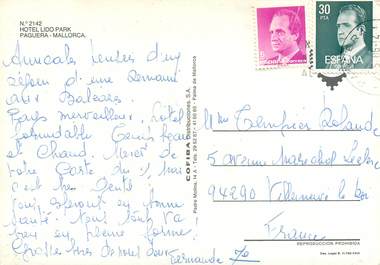 N.º 2142
HOTEL LIDO PARK
PAGUERA - MALLORCA.
Amicales pensées d'un
séjour d'une semaine
aux Baléares.
Pays merveilleux, hôtel
formidable temps beau
et chaud. Merci de
votre carte du
c'est très gentil
en bonne
santé. Nous tout va
bien en pleine forme
Grosses bises de nous deux
Fernande
COFIBA Distribuciones, S.A.
Palma de Mallorca
5
30
PTA
ESPAÑA
Mme Tempier Rolande
5 avenue Marechal Leclerc
94290 Villeneuve le Roi
France
REPRODUCCION PROHIBIDA